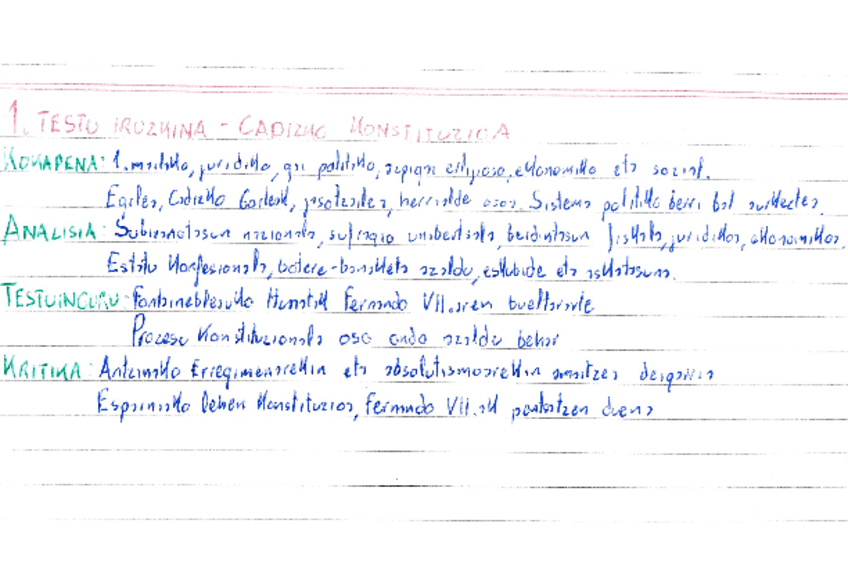 1. TESTU IRUZKINA - CADIZKO KONSTITUZIOA
KOKAPENA: 1.mailako, juridiko, gai politiko, ekonomiko eta sozial.
Egilea, Cadizko Gorteak, jasotzailea, herrialde osoa. Sistema politiko berri bat aurkeztea.
ANALISIA: Subiranotasun nazionala, sufragio unibertsala, berdintasun fiskala, juridikoa, ekonomikoa.
Estatu Konfesionala, botere-banaketa azaldu, eskubide eta askatasuna.
TESTUINGURU: Fontainebleauko Fernando VII.aren bueltararte
Prozesu Konstituzionala oso ondo azaldu behar
KRITIKA: Antzinako Erregimenarekin eta absolutismoarekin amaitzea
Espainiako lehen Konstituzioa, Fernando VII.ak duena